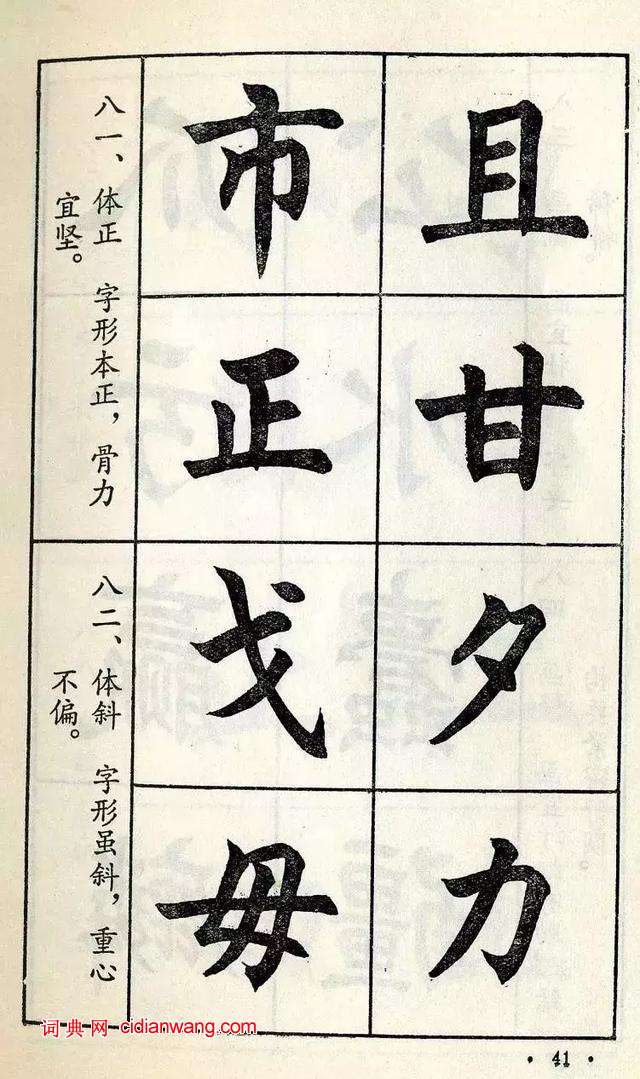 且
甘
市
正
八一、体正 字形本正，骨力
宜坚。
夕
力
戈
毋
八二、体斜 字形虽斜，重心
不偏。
词典网 cidianwang.com
· 41 ·